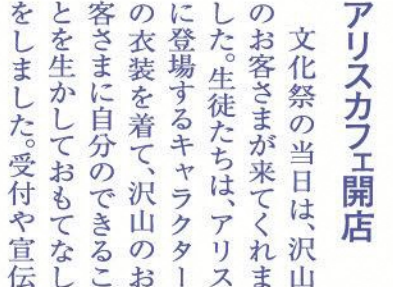 アリスカフェ開店
文化祭の当日は、沢山
のお客さまが来てくれま
した。生徒たちは、アリス
に登場するキャラクター
の衣装を着て、沢山のお
客さまに自分のできるこ
とを生かしておもてなし
をしました。受付や宣伝